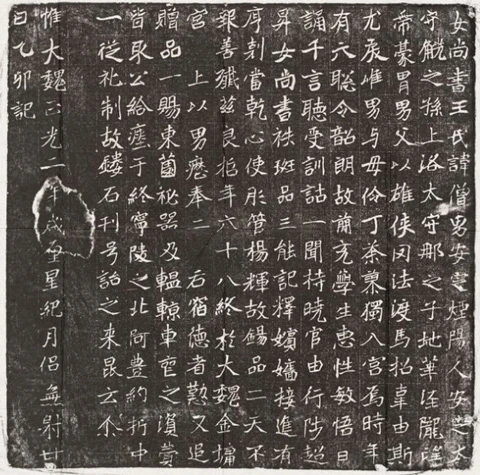 女尚書王氏諱僧男安定煙陽人安定太
守覬之孫上洛太守那之子地華涇隴
帝豪胄男父以雄俠罔法渡馬招辜由斯
尤戾唯男与母伶丁荼蓼獨入宮焉時年
有六聰令韶朗故簡充學生惠性敏悟日
誦千言聽受訓詁一聞持曉官由行陟超
昇女尚書秩班品三能記釋嬪嬙接進有
序剋當乾心使彤管楊輝故錫品二天不
報善殲茲良哲年六十八終於大魏金墉
宮 上以男歷奉二 后宿德者勤又追
贈品一賜東園祕器及轀輬車至之濱塋
皆取公給瘞于終寧陵之北阿豊約折中
一從礼制故鐫石刊号詒之来昆云尒
惟大魏正光二年歲至星紀月侣無射廿
日乙卯記